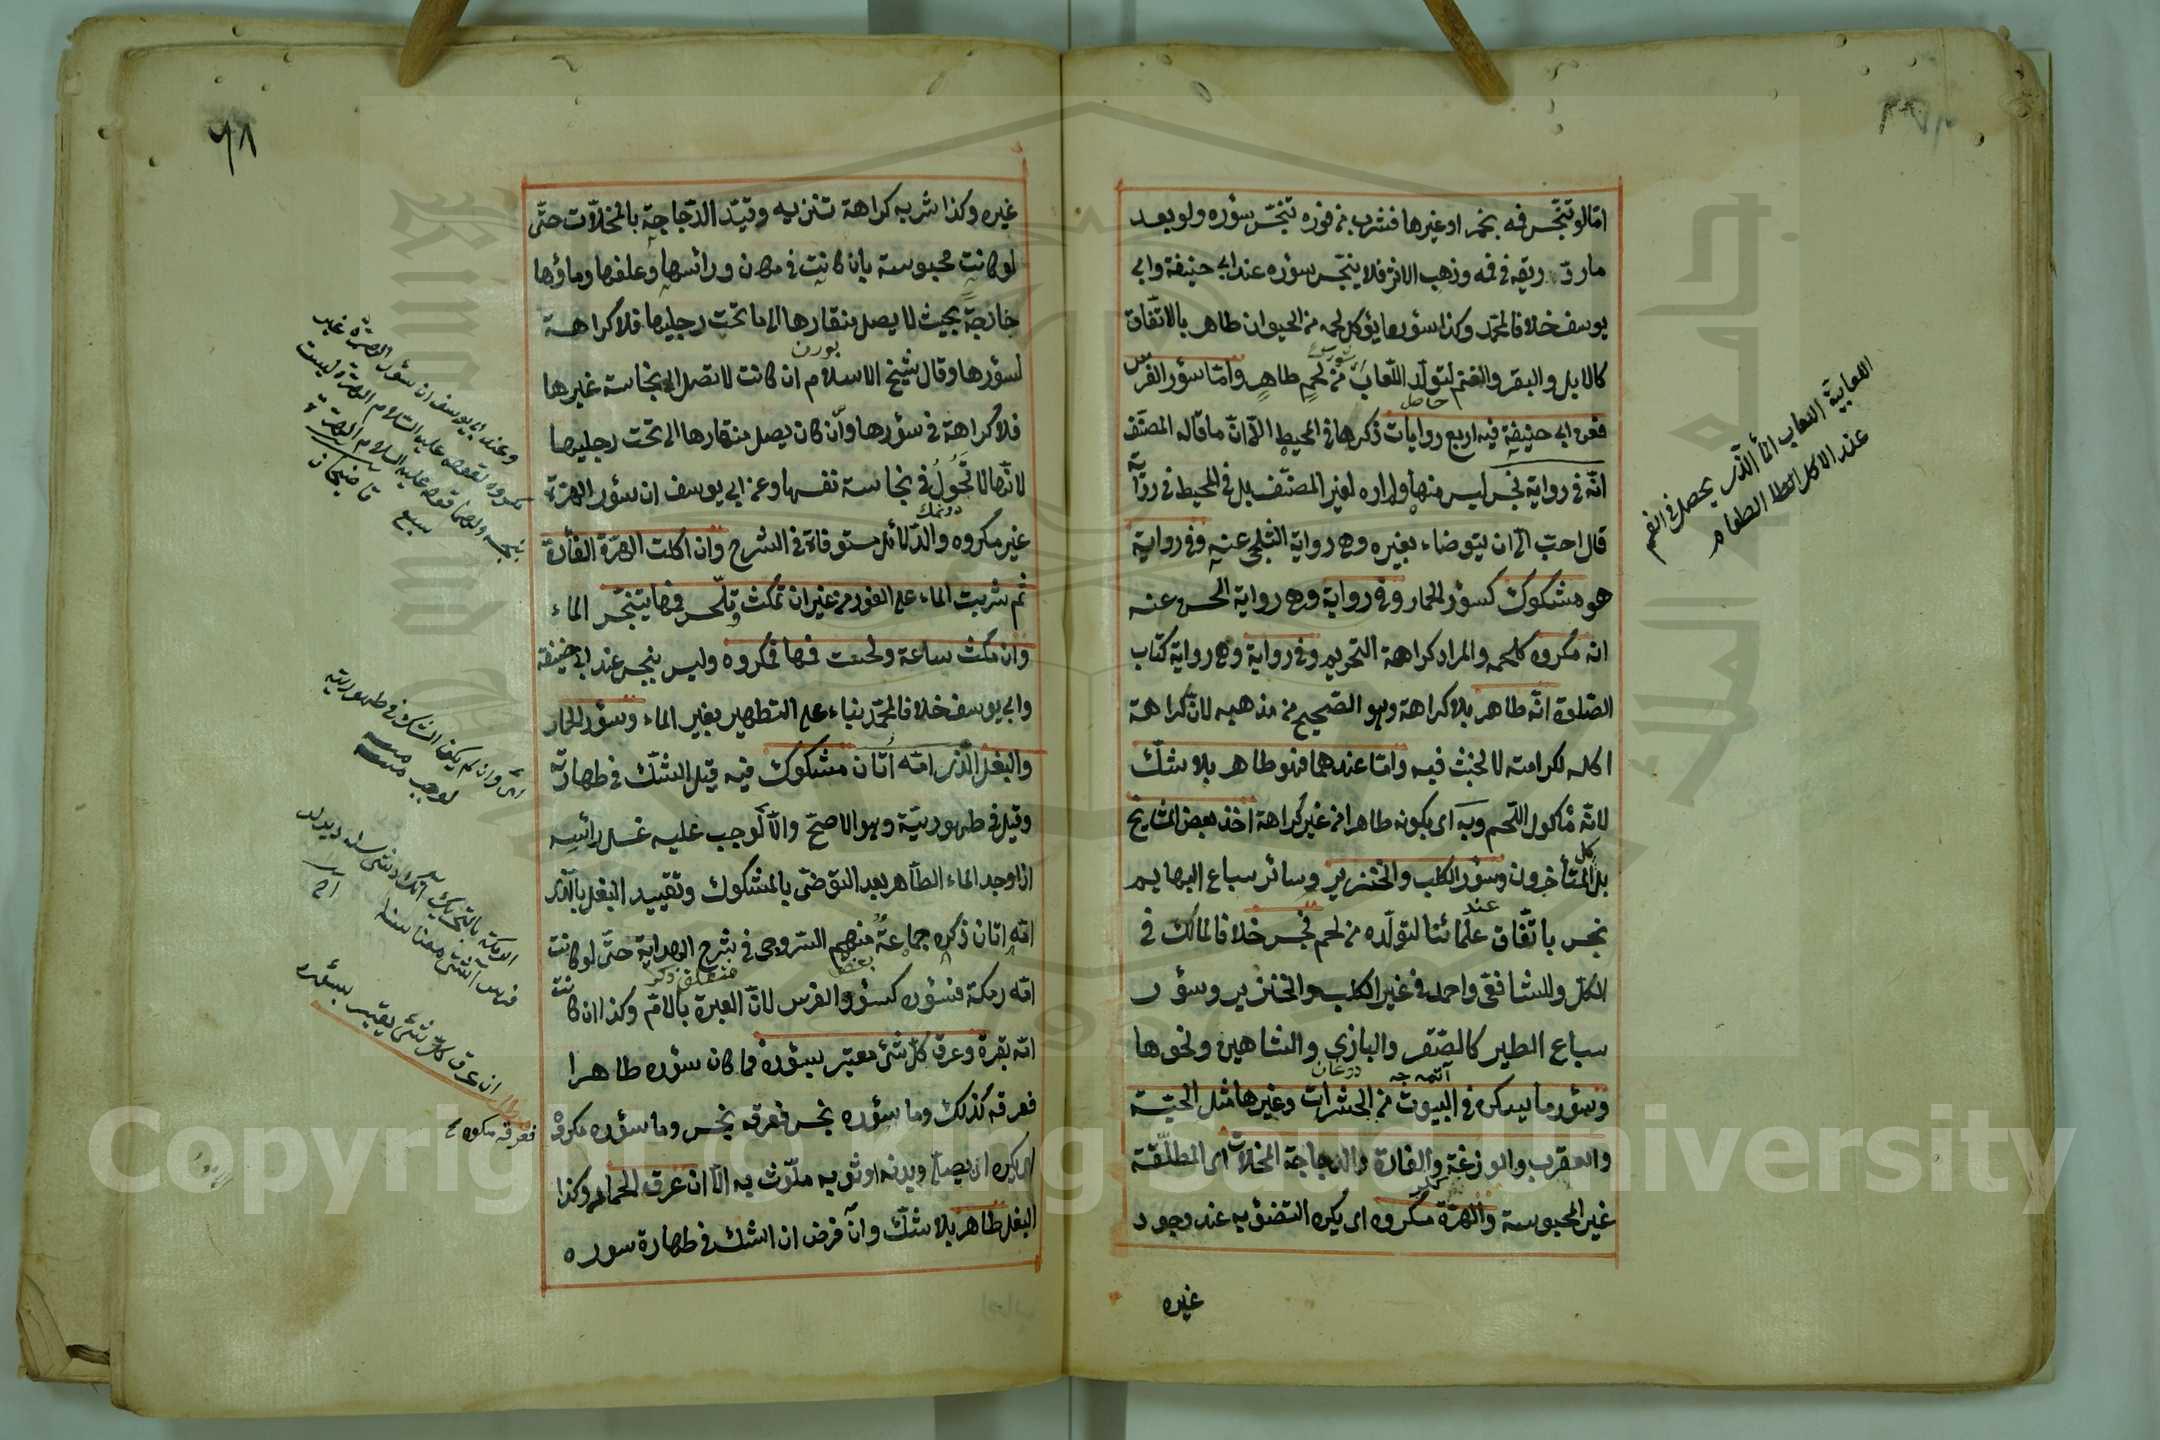 امّا لو تنجّس فمه بخمر او غيرها فشرب من فوره تنجّس سؤره ولو بعد
ما ردّد ريقه في فمه وذهب الاثر فلا ينجّس سؤره عند ابي حنيفة وابي
يوسف خلافا لمحمّد وكذا سؤر ما يؤكل لحمه من الحيوان طاهر بالاتّفاق
كالابل والبقر والغنم لتولّد اللّعاب من لحم طاهر وامّا سؤر الفرس
فعن ابي حنيفة فيه اربع روايات ذكرها في المحيط الّا انّ ما قاله المصنّف
انّه في رواية نجس ليس منها ولم اره لغير المصنّف بل في المحيط في رواية
قال احبّ اليّ ان يتوضاء بغيره وهي رواية البلخي عنه وفي رواية
هو مشكوك كسؤر الحمار وفي رواية وهي رواية الحسن عنه
انه مكروه كلحمه والمراد كراهة التحريم وفي رواية وهي رواية كتاب
الصّلوة انّه طاهر بلا كراهة وهو الصّحيح من مذهبه لانّ كراهة
اكله لكرامته لا لخبث فيه وامّا عندهما فهو طاهر بلا شكّ
لانّه مأكول اللّحم وبه اي بكونه طاهرا من غير كراهة اخذ بعض المشايخ
بل كل المتأخرون وسؤر الكلب والخنزير وسائر سباع البهايم
نجس باتّفاق علمائنا لتولّده من لحم نجس خلافا لمالك في
عند
الكلّ وللشافعي واحمد في غير الكلب والخنزير وسؤر
سباع الطير كالصّقر والبازي والشاهين ونحوها
وسؤر ما يسكن في البيوت من الحشرات وغيرها مثل الحيّة
والعقرب والوزغة والفارة والدجاجة المخلات اي المطلّقة
غير المحبوسة والهرّة مكروه اي يكره التوضؤ به عند وجود
غيره
اللعابية اللعاب الماء الذي يحصل في الفم
عند الاكل الطعام
٦٨
غيره وكذا شربه كراهة تنزيه وقيّد الدّجاجة بالمخلّات حتّى
لو كانت محبوسة بان كانت في مكان ورائسها وعلفها وماؤها
خارجة بحيث لا يصل منقارها الى ما تحت رجليها فلا كراهة
بورن
لسؤرها وقال شيخ الاسلام ان كانت لا تصل الى نجاسة غيرها
فلا كراهة في سؤرها وان كان يصل منقارها الى تحت رجليها
لانّها لا تجول في نجاسة نفسها وعن ابي يوسف ان سؤر الهرّة
غير مكروه والدّلائل مستوفاة في الشرح وان اكلت الهرّة الفأرة
ثم شربت الماء على الفور من غير ان تمكث وتلحس فمها يتنجّس الماء
وان مكثت ساعة ولحست فمها فمكروه وليس بنجس عند ابي حنيفة
وابي يوسف خلافا لمحمّد بناء على التطهير بغير الماء وسؤر الحمار
والبغل الّذي امّه اتان مشكوك فيه قيل الشّك في طهارته
وقيل في طهوريّته وهو الاصحّ والّا لوجب عليه غسل رائسه
اذا وجد الماء الطّاهر بعد التوضّي بالمشكوك وتقييد البغل بالّذي
امّه اتان ذكره جماعة منهم السروجي في شرح الهداية حتّى لو كانت
متعلق ذكر
امّه رمكة فسؤره كسؤر الفرس لانّ العبرة بالامّ وكذا ان كانت
امّه بقرة وعرق كلّ شئ معتبر بسؤره فما كان سؤره طاهرا
فعرقه كذلك وما سؤره نجس فعرقه نجس وما سؤره مكروه
يكره ان يصلّي وبدنه او ثوبه ملوّث به الّا ان عرق الحمار وكذا
البغل طاهر بلا شكّ وان فرض ان الشك في طهارة سوره
وعند ابي يوسف ان سؤر الهرّة غير
مكروه لقوله عليه السّلام الهرّة ليست
بنجسة ولهما قوله عليه السلام الهرّة
سبع قاضيخان
اي وان لم يكن الشك في طهوريته
لوجب
ان عرق كل شئ يعتبر بسؤره
فعرقه مكروه